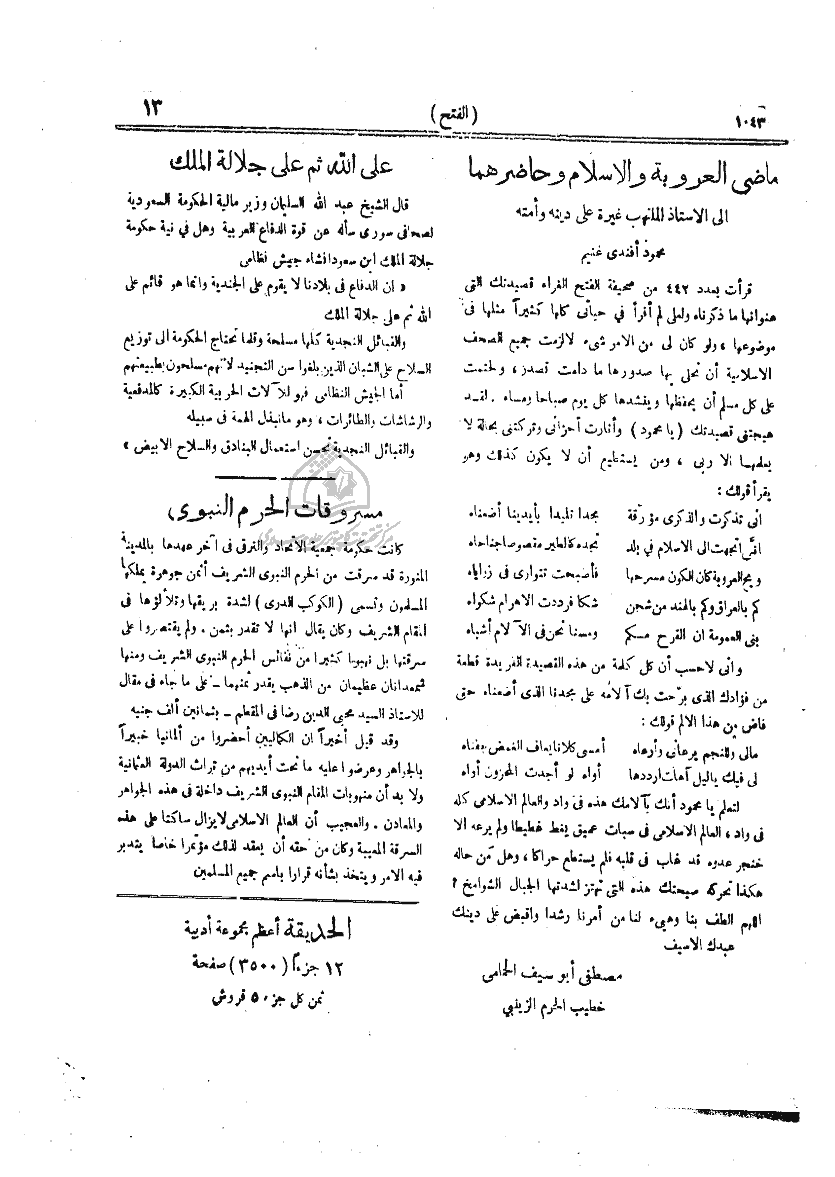 ١٠٤٣
(الفتح)
١٣
ماضى العروبة والاسلام وحاضرهما
الى الاستاذ الملتهب غيرة على دينه وأمته
محمود أفندى غنيم
قرأت بعدد ٤٤٢ من صحيفة الفتح الغراء قصيدتك التى
عنوانها ما ذكرناه ولعلى لم أقرأ فى حياتى كلها كثيراً مثلها فى
موضوعها ، ولو كان لى من الامر شىء لالزمت جميع الصحف
الاسلامية أن تحلى بها صدورها ما دامت تصدر ، ولحتمت
على كل مسلم أن يحفظها وينشدها كل يوم صباحا ومساء . لقد
هيجتنى قصيدتك (يا محمود) وأثارت أحزانى وتركتنى بحالة لا
يعلمها الا ربى ، ومن يستطيع أن لا يكون كذلك وهو
يقرأ قولك :
انى تذكرت والذكرى مؤرقة مجدا تليدا بأيدينا أضعناه
أنى اتجهت الى الاسلام فى بلد تجده كالطير مقصوصا جناحاه
ويح العروبة كان الكون مسرحها فأصبحت تتوارى فى زواياه
كم بالعراق وكم بالهند من شجن شكا فرددت الاهرام شكواه
بنى العمومة ان القرح مسكم ومسنا نحن فى الآلام أشباه
وانى لاحسب أن كل كلمة من هذه القصيدة الفريدة قطعة
من فؤادك الذى برّحت بك آلامه على مجدنا الذى أضعناه حتى
فاض من هذا الالم قولك :
مالى وللنجم يرعانى وأرعاه أمسى كلانا يعاف الغمض جفناه
لى فيك ياليل آهات أرددها أواه لو أجدت المحزون أواه
لتعلم يا محمود أنك بآلامك هذه فى واد والعالم الاسلامى كله
فى واد ، العالم الاسلامى فى سبات عميق يغط غطيطا ولم يرعه الا
خنجر عدوه قد غاب فى قلبه فلم يستطع حراكا ، وهل من حاله
هكذا تحركه صيحتك هذه التى تهتز لشدتها الجبال الشوامخ ؟
اللهم الطف بنا وهيىء لنا من أمرنا رشدا واقبض على دينك
عبدك الاسيف
مصطفى أبو سيف الحمامى
خطيب الحرم الزينبي
على الله ثم على جلالة الملك
قال الشيخ عبد الله السليمان وزير مالية الحكومة السعودية
لصحافى سورى سأله عن قوة الدفاع العربية وهل فى نية حكومة
جلالة الملك ابن سعود انشاء جيش نظامى
« ان الدفاع فى بلادنا لا يقوم على الجندية وانما هو قائم على
الله ثم على جلالة الملك
والقبائل النجدية كلها مسلحة وقلما تحتاج الحكومة الى توزيع
السلاح على الشبان الذين بلغوا سن التجنيد لانهم مسلحون بطبيعتهم
أما الجيش النظامى فهو للآلات الحربية الكبيرة كالمدفعية
والرشاشات والطائرات ، وهو مانبذل الهمة فى سبيله
والقبائل النجدية تحسن استعمال البنادق والسلاح الابيض »
مسروقات الحرم النبوى
كانت حكومة جمعية الاتحاد والترقى فى آخر عهدها بالمدينة
المنورة قد سرقت من الحرم النبوى الشريف أثمن جوهرة يملكها
المسلمون وتسمى (الكوكب الدرى) لشدة بريقها وتلألؤها فى
المقام الشريف وكان يقال انها لا تقدر بثمن . ولم يقتصروا على
سرقتها بل نهبوا كثيرا من نفائس الحرم النبوى الشريف ومنها
شمعدانان عظيمان من الذهب يقدر ثمنهما ــ على ما جاء فى مقال
للاستاذ السيد محيى الدين رضا فى المقطم ــ بثمانين ألف جنيه
وقد قيل أخيراً ان الكماليين أحضروا من ألمانيا خبيراً
بالجواهر وعرضوا عليه ما تحت أيديهم من تراث الدولة العثمانية
ولا بد أن منهوبات المقام النبوى الشريف داخلة فى هذه الجواهر
والمعادن . والعجيب أن العالم الاسلامى لايزال ساكتا على هذه
السرقة المعيبة وكان من حقه أن يعقد لذلك مؤتمرا خاصا يتدبر
فيه الامر ويتخذ بشأنه قرارا باسم جميع المسلمين
الحديقة أعظم مجموعة أدبية
١٢ جزءاً (٣٥٠٠) صفحة
ثمن كل جزء ٥ قروش